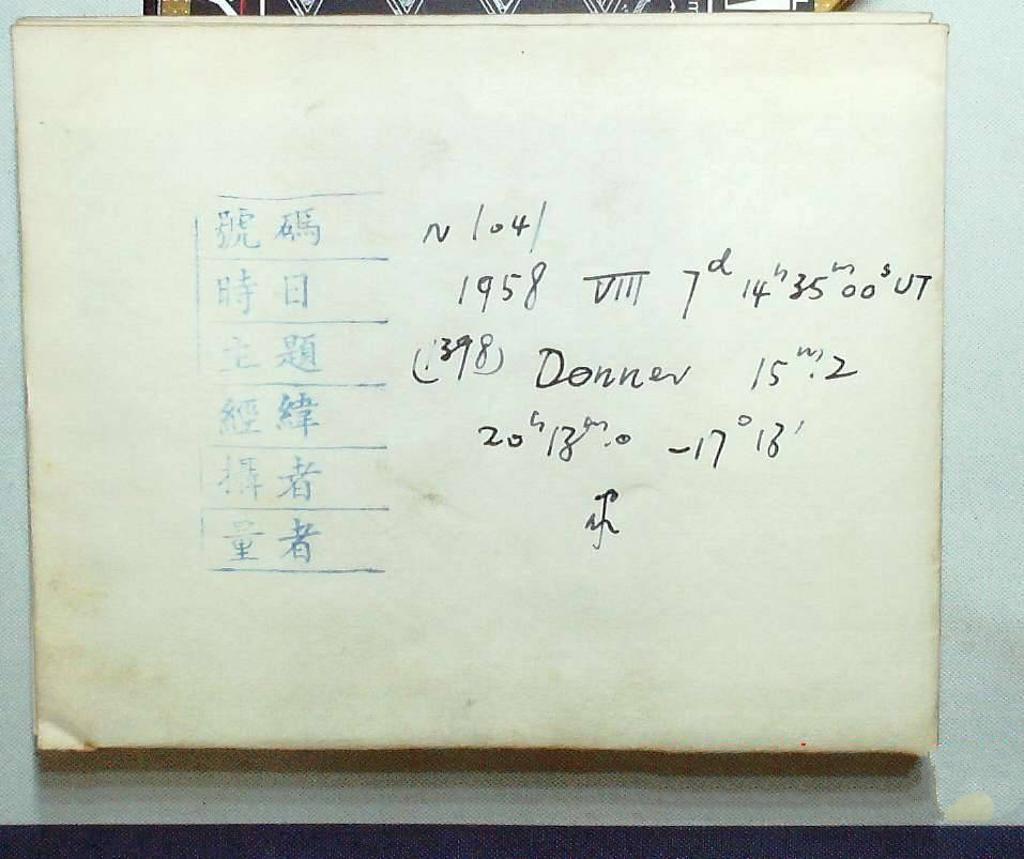 號碼 N 1041
時日 1958 VIII 7ᵈ 14ʰ 35ᵐ 00ˢ UT
主題 (1398) Donner 15ᵐ.2
經緯 20ʰ13ᵐ.0 -17°13′
攝者
量者